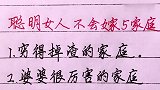 聪明女人不会嫁5家庭
1.穷得掉渣的家庭.
2.婆婆很厉害的家庭